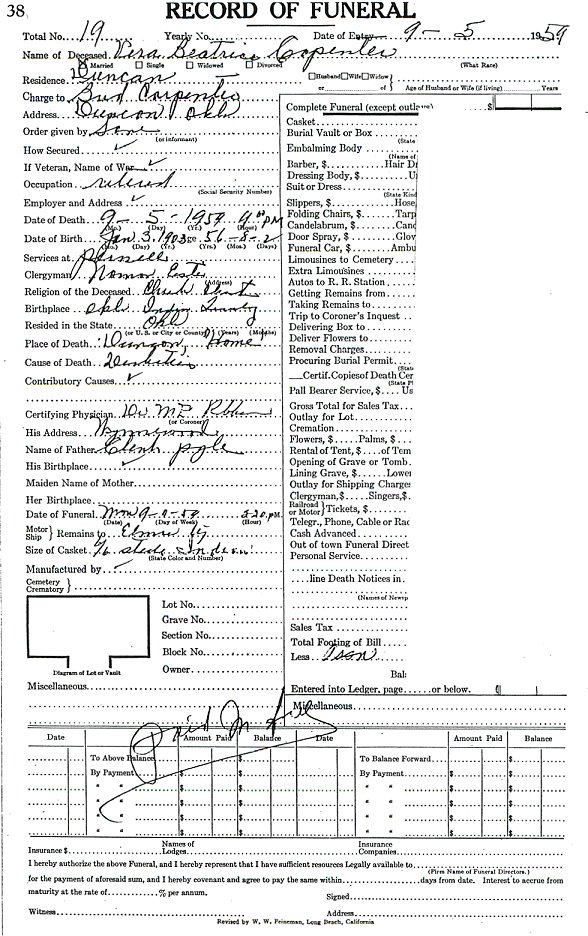 38
RECORD OF FUNERAL
Total No. 19 Yearly No. Date of Entry 9-5 1959
Name of Deceased Vera Beatrice Carpenter
Married Single Widowed Divorced (What Race)
Residence Duncan Husband Wife Widow
or of Age of Husband or Wife (if living) Years
Charge to Bud Carpenter
Address Duncan Okl
Order given by Son
(or informant)
How Secured
If Veteran, Name of War
Occupation retired
(Social Security Number)
Employer and Address
Date of Death 9-5-1959 4:00 PM
(Mo.) (Day) (Yr.) (Hour)
Date of Birth Jan 3, 1903 Age 56-8-2
(Mo.) (Day) (Yr.) (Yrs.) (Mos.) (Days)
Services at
Clergyman
(Address)
Religion of the Deceased Church
Birthplace Okl
Resided in the State Okl
(or U. S. or City or County) (Years) (Months)
Place of Death Home
Cause of Death
Contributory Causes
Certifying Physician Dr
(or Coroner)
His Address Wynnewood
Name of Father
His Birthplace
Maiden Name of Mother
Her Birthplace
Date of Funeral Mon 9- 2:20 P.M.
(Date) (Day of Week) (Hour)
Motor Ship Remains to Elmore City
Size of Casket
(State Color and Number)
Manufactured by
Cemetery Crematory
Lot No.
Grave No.
Section No.
Block No.
Owner
Diagram of Lot or Vault
Miscellaneous
Complete Funeral (except outlays) $
Casket
Burial Vault or Box
(State
Embalming Body
(Name of
Barber, $ Hair D
Dressing Body, $ U
Suit or Dress
(State Kind
Slippers, $ Hose,
Folding Chairs, $ Tarp
Candelabrum, $ Canc
Door Spray, $ Glov
Funeral Car, $ Ambu
Limousines to Cemetery
Extra Limousines
Autos to R. R. Station
Getting Remains from
Taking Remains to
Trip to Coroner's Inquest
Delivering Box to
Deliver Flowers to
Removal Charges
Procuring Burial Permit
(Sta
Certif. Copies of Death Cer
(State P
Pall Bearer Service, $ Us
Gross Total for Sales Tax
Outlay for Lot
Cremation
Flowers, $ Palms, $
Rental of Tent, $ of Tem
Opening of Grave or Tomb
Lining Grave, $ Lower
Outlay for Shipping Charges
Clergyman, $ Singers, $
Railroad or Motor Tickets, $
Telegr., Phone, Cable or Rad
Cash Advanced
Out of town Funeral Direct
Personal Service
line Death Notices in
(Names of Newsp
Sales Tax
Total Footing of Bill
Less
Bal
Entered into Ledger, page or below.
Miscellaneous
Paid In Full
Date Amount Paid Balance Date Amount Paid Balance
To Above Balance $ To Balance Forward $
By Payment $ $ By Payment $ $
" " $ $ " " $ $
" " $ $ " " $ $
" " $ $ " " $ $
" " $ $ " " $ $
Insurance $ Names of Lodges Insurance Companies
I hereby authorize the above Funeral, and I hereby represent that I have sufficient resources Legally available to
(Firm Name of Funeral Directors.)
for the payment of aforesaid sum, and I hereby covenant and agree to pay the same within days from date. Interest to accrue from
maturity at the rate of % per annum.
Signed
Witness Address
Revised by W. W. Feineman, Long Beach, California